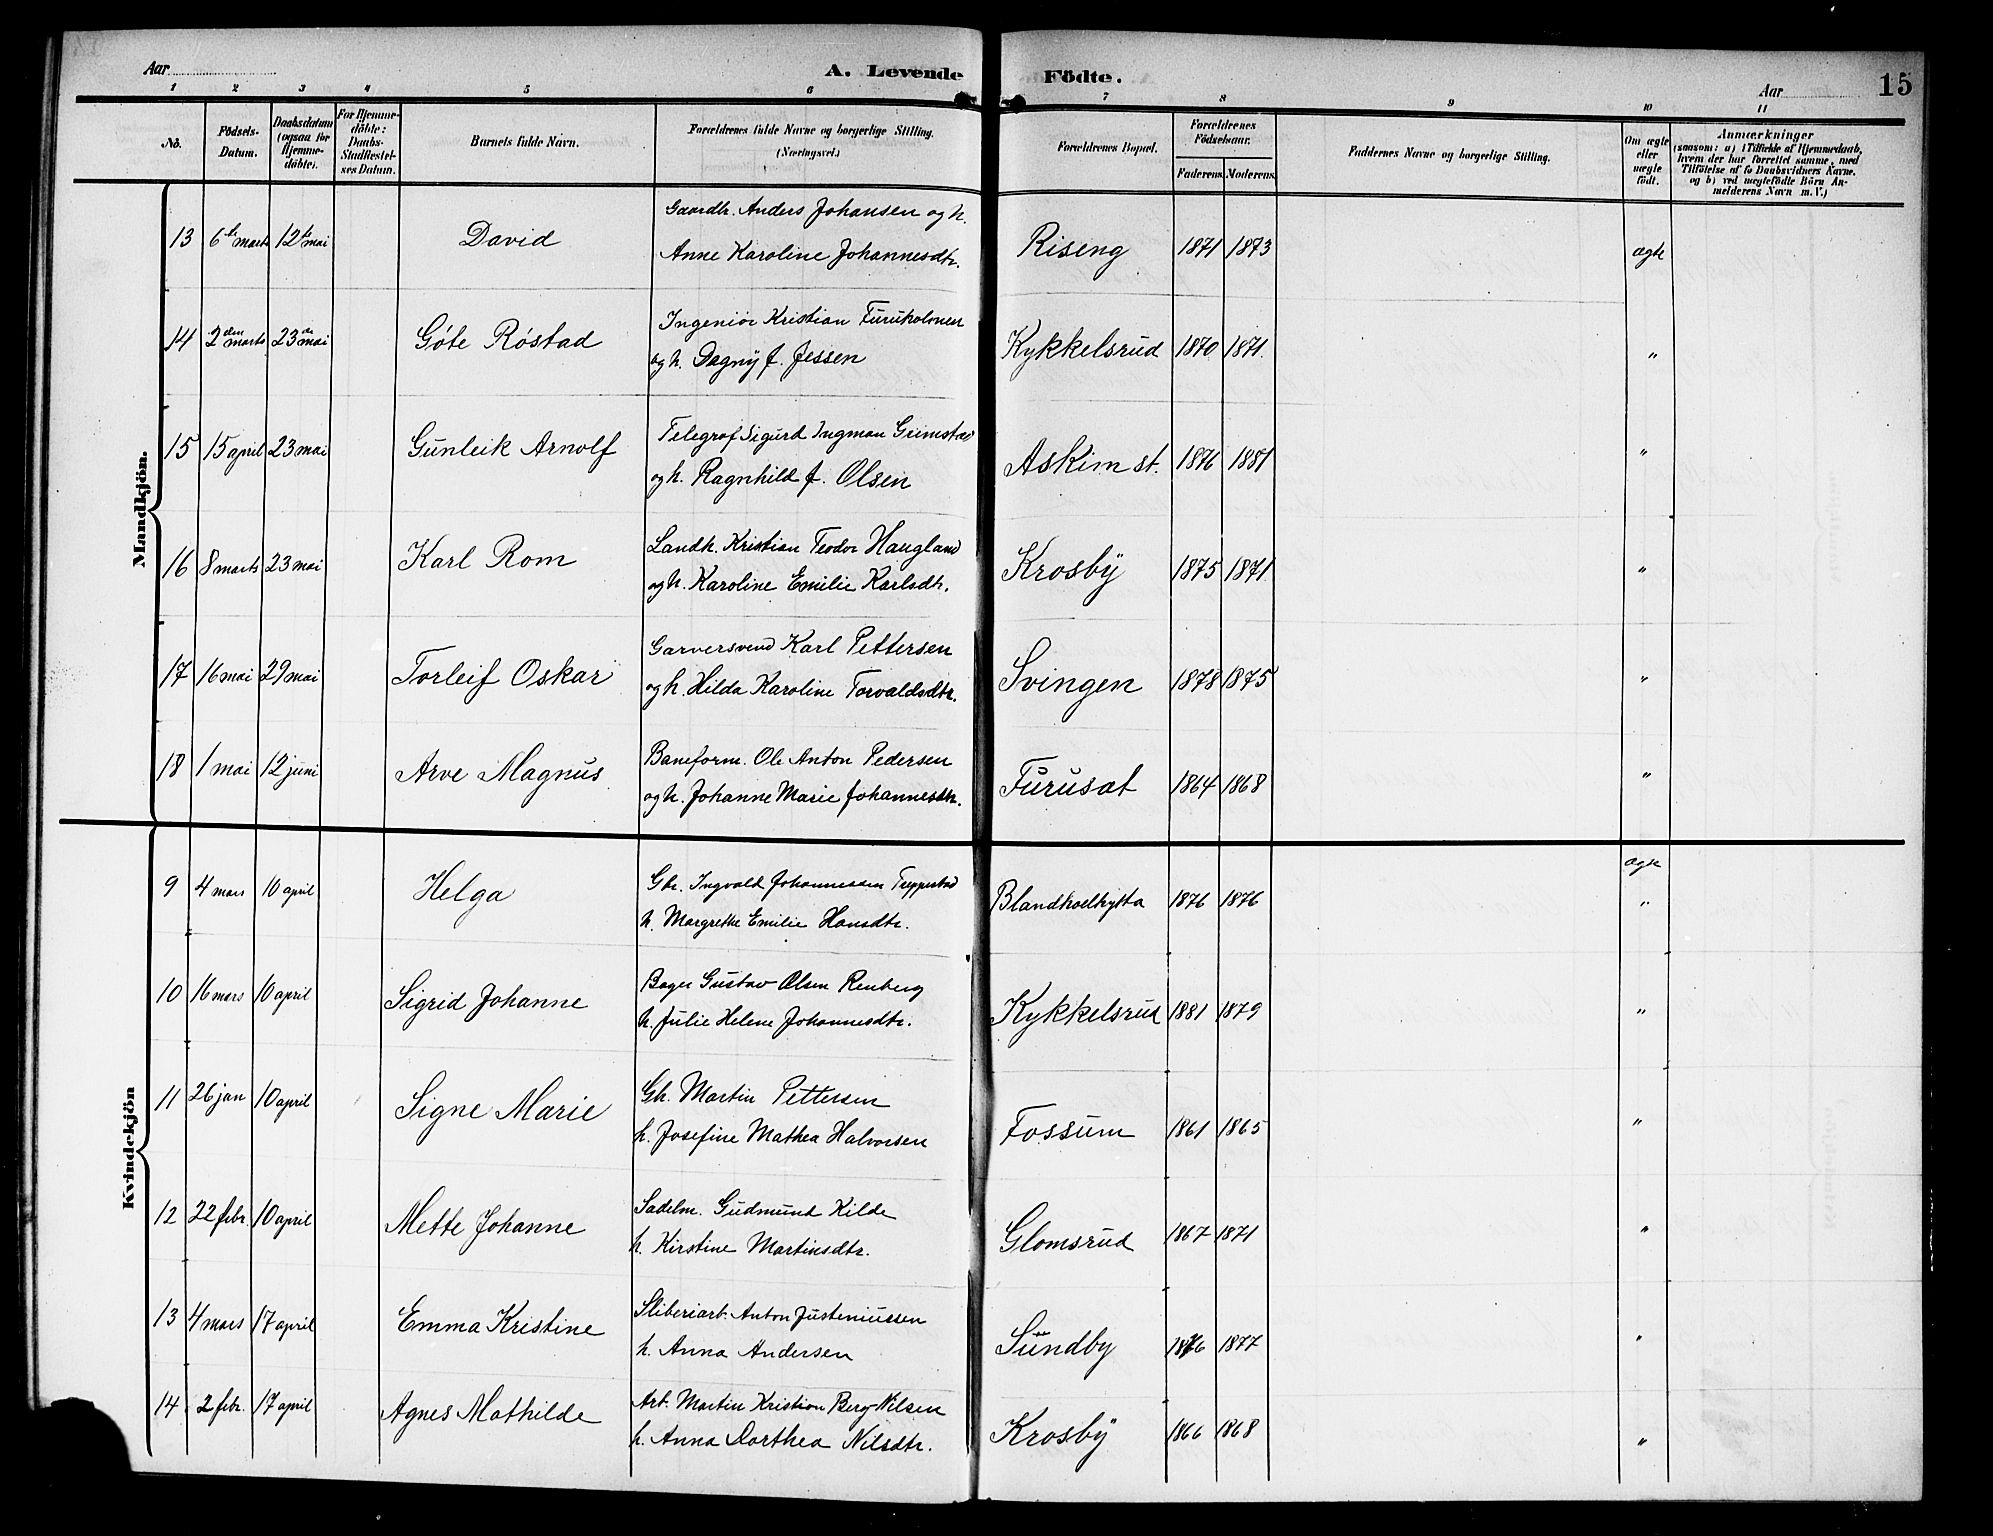 Aar
A. Levende Födte.
Aar
15
1 2 3 4 5 6 7 8 9 10 11
No.
Födsels-Datum.
Daabsdatum (ogsaa for Hjemme-döbte).
For Hjemme-döbte: Daabs-Stadfæstel-ses Datum.
Barnets fulde Navn.
Forældrenes fulde Navne og borgerlige Stilling. (Næringsvei.)
Forældrenes Bopæl.
Forældrenes Födselsaar.
Faderens. Moderens.
Faddernes Navne og borgerlige Stilling.
Om ægte eller uægte födt.
Anmærkninger
(saasom: a) i Tilfælde af Hjemmedaab, hvem der har forrettet samme, med Tilföielse af to Daabsvidners Navne, og b) ved uægtefödte Börn An-melderens Navn m. V.)
Mandkjön.
13 6te marts 12te mai David Gaardbr. Anders Johansen og h. Anne Karoline Johannesdtr. Riseng 1871 1873 ægte
14 2den marts 23de mai Göte Röstad Ingeniör Kristian Furuholmen og h. Dagny f. Jessen Kykkelsrud 1870 1871. "
15 15 april 23 mai Gunleik Arnolf Telegraf Sigurd Ingman Grimstad og h. Ragnhild f. Olsen Askim st. 1876 1881 "
16 8 marts 23 mai Karl Rom Landh. Kristian Teodor Haugland og h. Karoline Emilie Karlsdtr. Krosby 1875 1871 "
17 16 mai 29 mai Torleif Oskar Garversvend Karl Pettersen og h. Hilda Karoline Torvaldsdtr. Svingen 1878 1875 "
18 1 mai 12 juni Arve Magnus Baneform. Ole Anton Pedersen og h. Johanne Marie Johannesdtr. Furusat 1864 1868 "
Kvindekjön
9 4 mars 10 april Helga Gbr. Ingvald Johannessen h. Margrethe Emilie Hansdtr. 1876 1876 ægte "
10 16 mars 10 april Sigrid Johanne Bager Gustav Olsen Renberg h. Julie Helene Johannesdtr. Kykkelsrud 1881 1879 "
11 26 jan 10 april Signe Marie Gbr. Martin Pettersen h. Josefine Mathea Halvorsen Fossum 1861 1865 "
12 22 febr. 10 april Mette Johanne Sadelm. Gudmund Kilde h. Kirstine Martinsdtr. Glomsrud 1867 1871 "
13 4 mars 17 april Emma Kristine Sliberiarb. Anton Justeniussen h. Anna Andersen Sundby 1876 1877 "
14 2 febr. 17 april Agnes Mathilde Arb. Martin Kristian Berg Nilsen h. Anna Dorthea Nilsdtr. Krosby 1866 1868 "